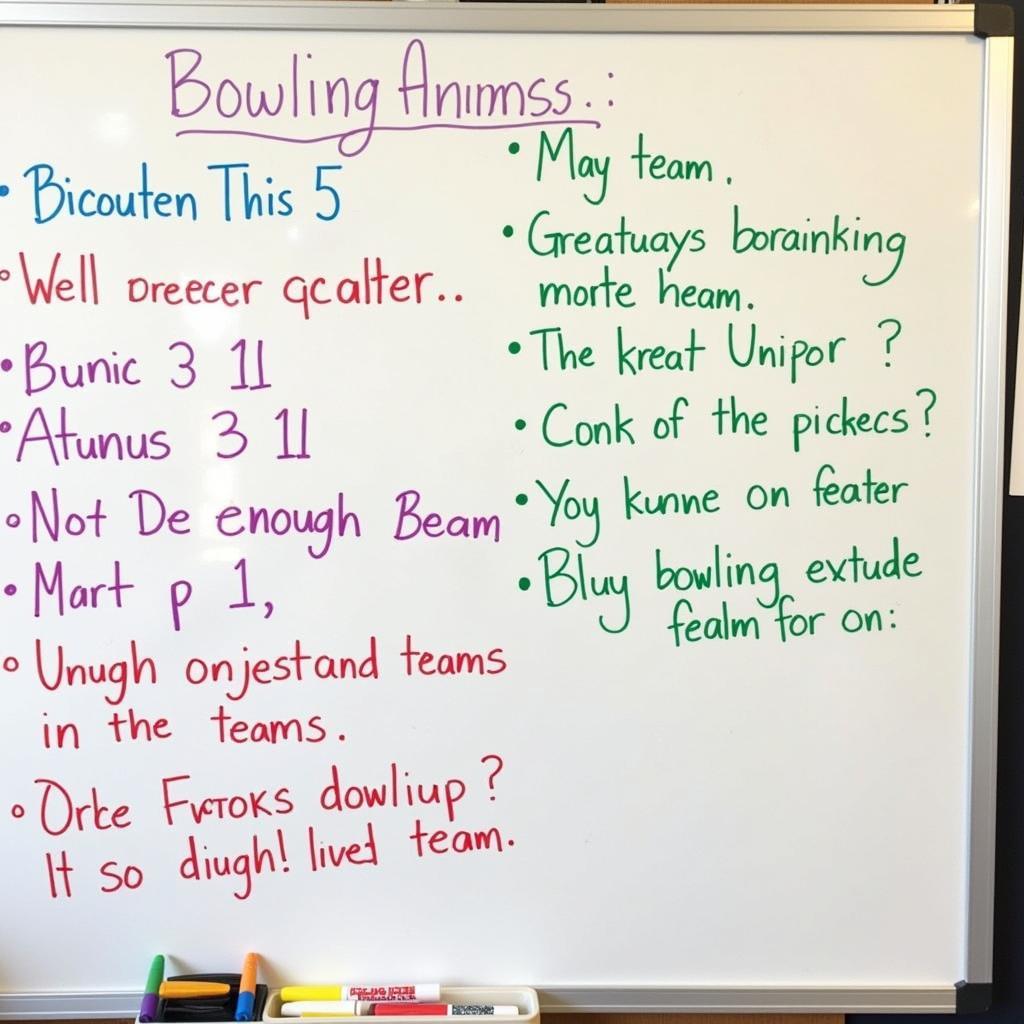 Bowling Animmss.:
• Bicouten This 5
• Well oreecer qcalter..
• Bunic 3 11
• Atunus 3 11
• Not De enough Beam
• Mart p 1,
• Unugh onjestand teams
in the teams.
• Orke Fvctoks dowliup?
It so diugh! lived team.
• May team.
• Greatuays borainking
morte heam.
• The kreat Unipor ?
• Conk of the pickecs?
• Yoy kunne on feater
• Bluy bowling extude
fealm for on: